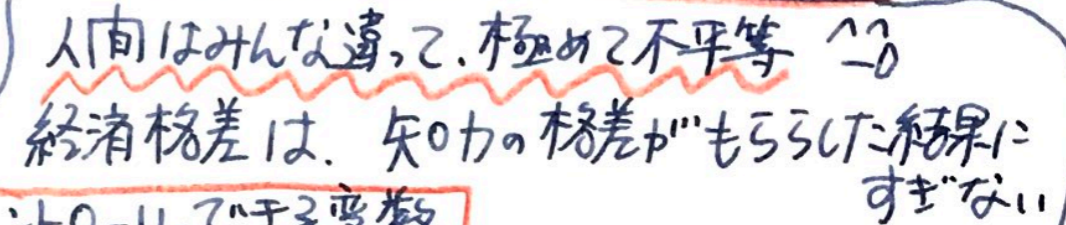 人間はみんな違って、極めて不平等 ^^
経済格差は、知力の格差がもららした結果に
すぎない
できる変数